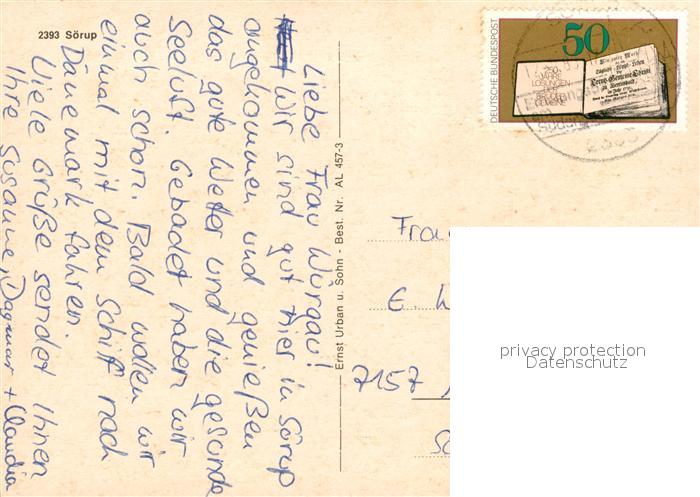 2393 Sörup
Liebe Frau Würgau!
Wir sind gut hier in Sörup
angekommen und genießen
das gute Wetter und die gesunde
Seeluft. Gebadet haben wir
auch schon. Bald wollen wir
einmal mit dem Schiff nach
Dänemark fahren.
Viele Grüße sendet Ihnen
Ihre Susanne, Dagmar + Claudia
Ernst Urban u. Sohn - Best. Nr. AL 457-3
DEUTSCHE BUNDESPOST
50
250
JAHRE
LOSUNGEN
DER
BRÜDER
GEMEINE
Frau
E. W
7157
privacy protection
Datenschutz